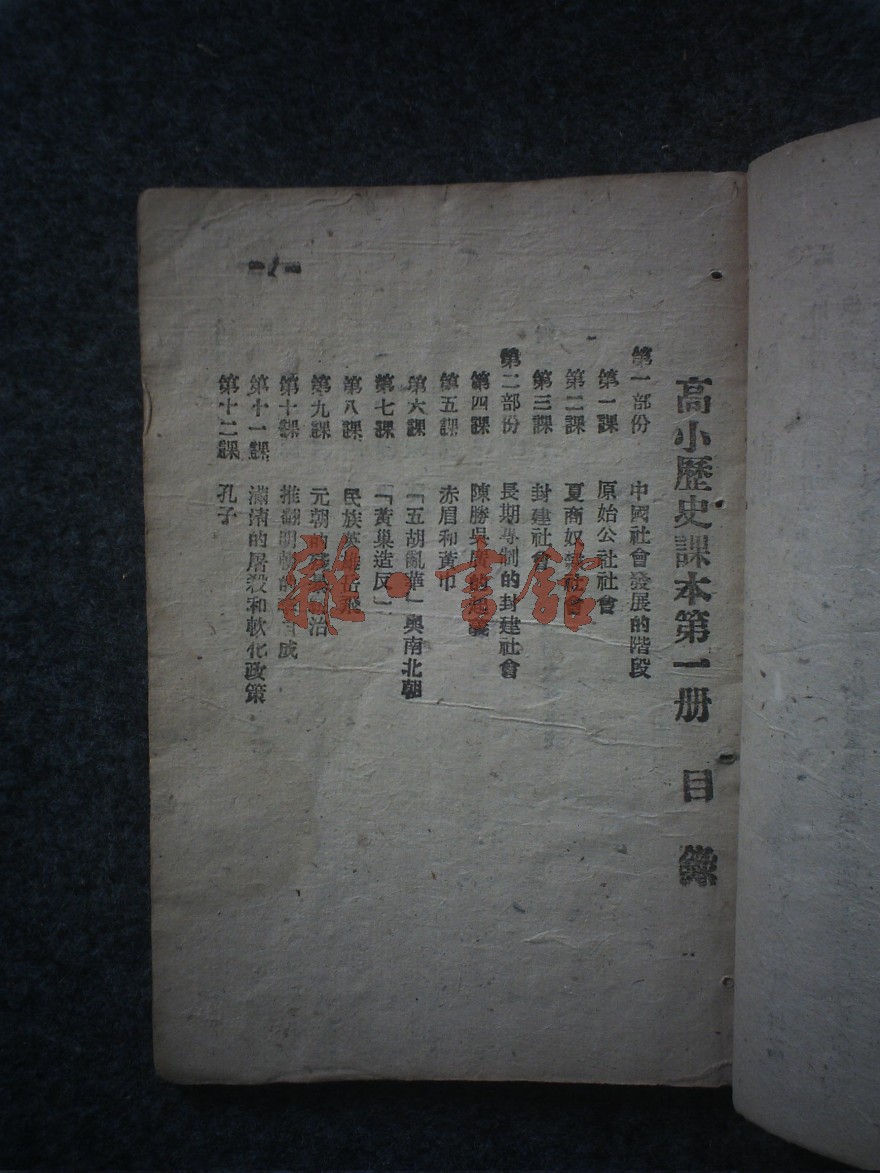 高小歷史課本第一册 目錄
第一部份 中國社會發展的階段
第一課 原始公社社會
第二課 夏商奴隸社會
第三課 封建社會
第二部份 長期專制的封建社會
第四課 陳勝吳廣的起義
第五課 赤眉和黃巾
第六課 「五胡亂華」與南北朝
第七課 「黃巢造反」
第八課 民族英雄岳飛
第九課 元朝的殘暴統治
第十課 推翻明朝的李自成
第十一課 滿清的屠殺和軟化政策
第十二課 孔子
雜·書館